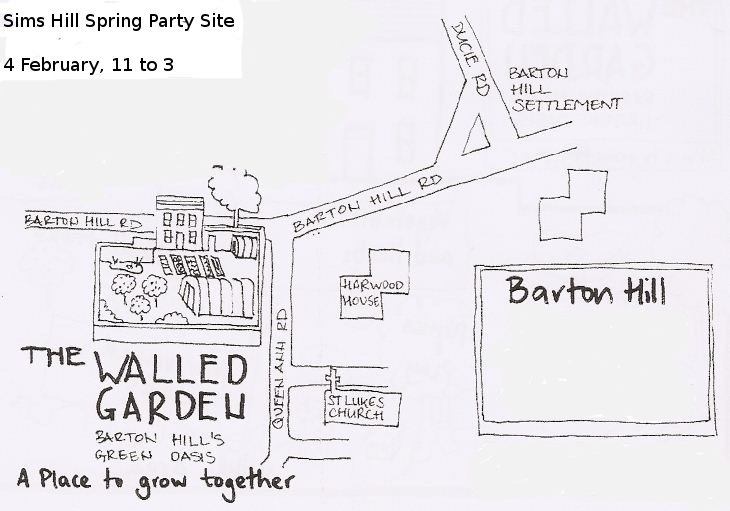 Sims Hill Spring Party Site
4 February, 11 to 3
DUCIE RD
BARTON
HILL
SETTLEMENT
BARTON HILL RD
BARTON HILL RD
HARWOOD
HOUSE
Barton Hill
QUEEN ANN RD
ST LUKES
CHURCH
THE WALLED
GARDEN
BARTON HILL'S
GREEN OASIS
A Place to grow together